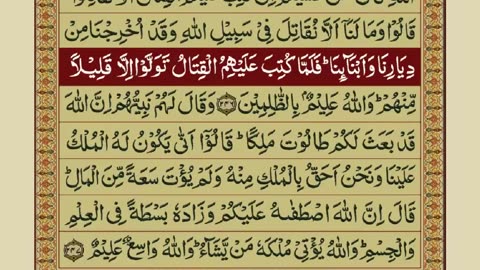 قَالُوۡا وَمَا لَنَاۤ اَلَّا نُقَاتِلَ فِىۡ سَبِيۡلِ اللّٰهِ وَقَدۡ اُخۡرِجۡنَا مِنۡ
دِيَارِنَا وَاَبۡنَآٮِٕنَا‌ؕ فَلَمَّا كُتِبَ عَلَيۡهِمُ الۡقِتَالُ تَوَلَّوۡا اِلَّا قَلِيۡلًا
مِّنۡهُمۡ‌ؕ وَاللّٰهُ عَلِيۡمٌۢ بِالظّٰلِمِيۡنَ ۝۲۴۶ وَقَالَ لَهُمۡ نَبِيُّهُمۡ اِنَّ اللّٰهَ
قَدۡ بَعَثَ لَـكُمۡ طَالُوۡتَ مَلِكًا‌ؕ قَالُوۡٓا اَنّٰى يَكُوۡنُ لَهُ الۡمُلۡكُ
عَلَيۡنَا وَنَحۡنُ اَحَقُّ بِالۡمُلۡكِ مِنۡهُ وَلَمۡ يُؤۡتَ سَعَةً مِّنَ الۡمَالِ‌ؕ
قَالَ اِنَّ اللّٰهَ اصۡطَفٰٮهُ عَلَيۡکُمۡ وَزَادَهٗ بَسۡطَةً فِى الۡعِلۡمِ
وَالۡجِسۡمِ‌ؕ وَاللّٰهُ يُؤۡتِىۡ مُلۡکَهٗ مَنۡ يَّشَآءُ‌ؕ وَاللّٰهُ وَاسِعٌ عَلِيۡمٌ ۝۲۴۷